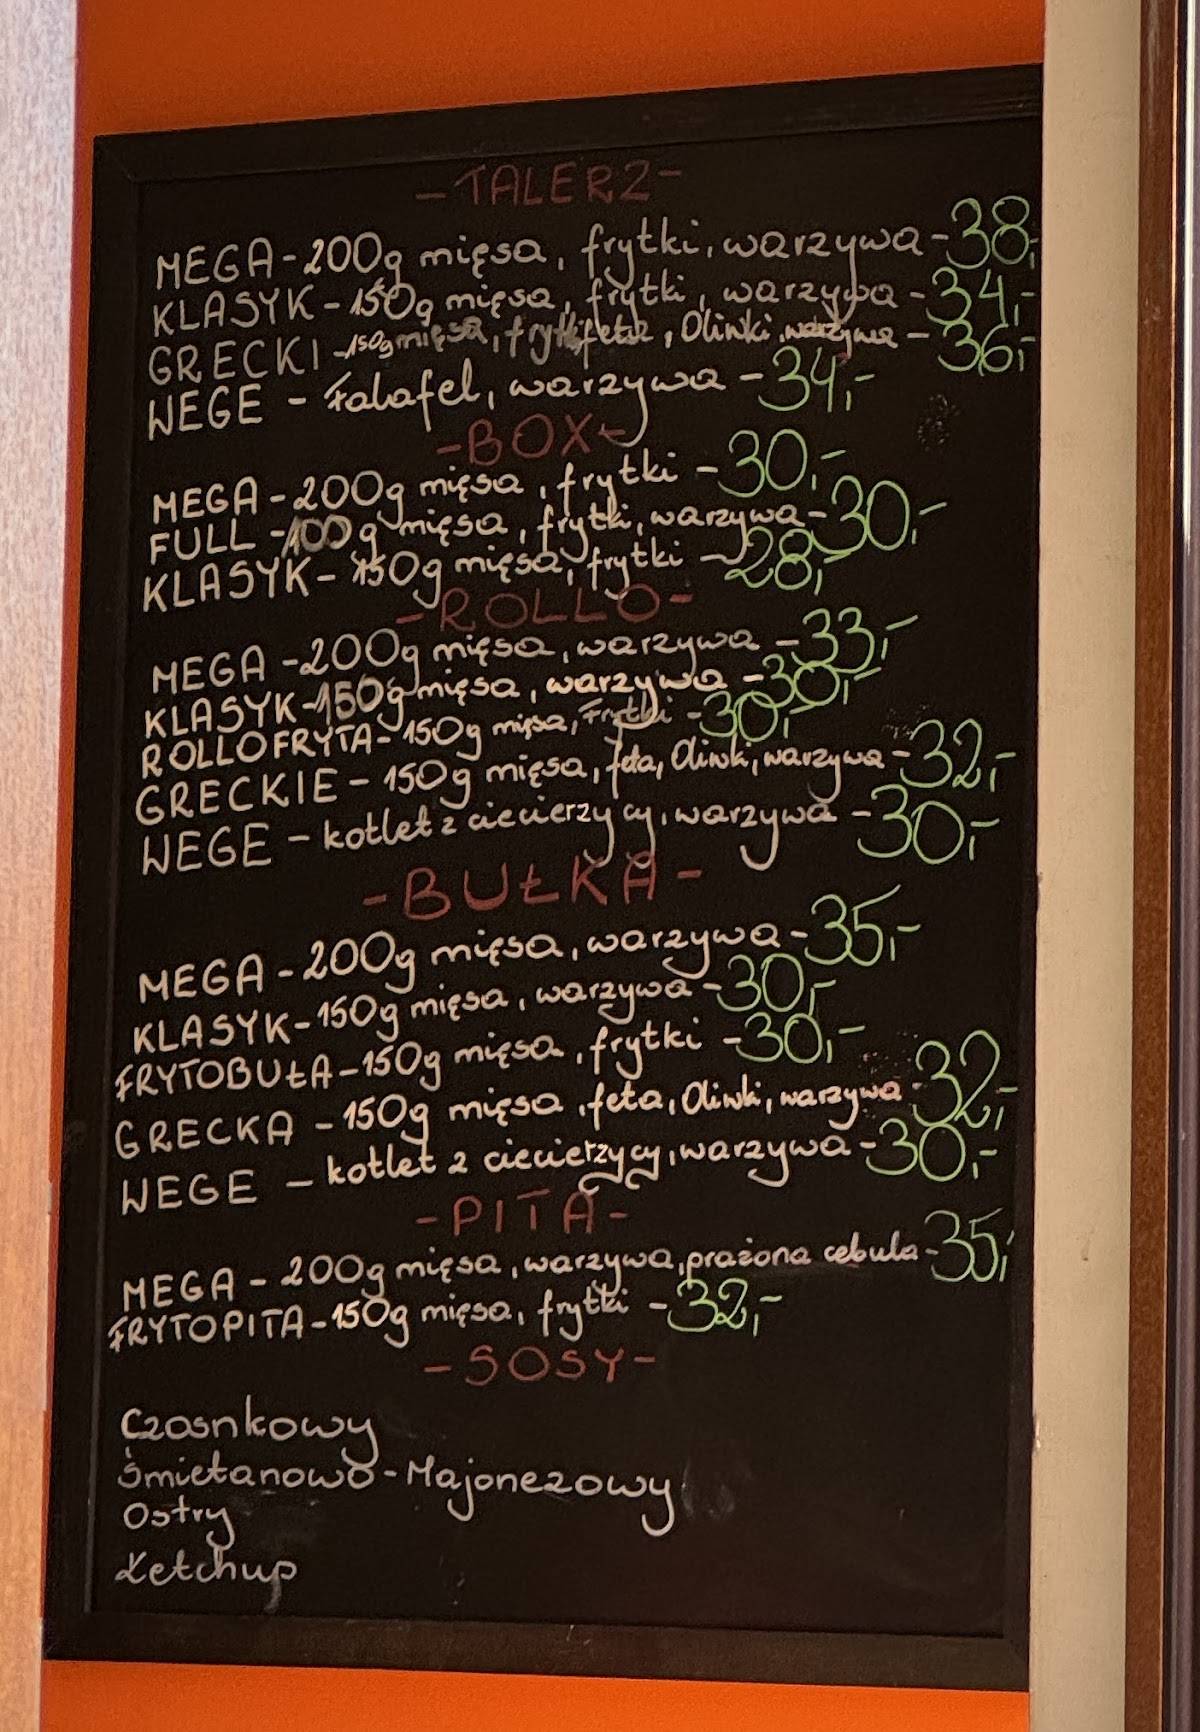 -TALERZ-
MEGA - 200g mięsa, frytki, warzywa - 38,-
KLASYK - 150g mięsa, frytki, warzywa - 34,-
GRECKI - 150g mięsa, frytki feta, Oliwki, warzywa - 36,-
WEGE - Falafel, warzywa - 34,-
-BOX-
MEGA - 200g mięsa, frytki - 30,-
FULL - 100g mięsa, frytki, warzywa - 30,-
KLASYK - 150g mięsa, frytki - 28,-
-ROLLO-
MEGA - 200g mięsa, warzywa - 33,-
KLASYK - 150g mięsa, warzywa - 30,-
ROLLOFRYTA - 150g mięsa, Frytki - 30,-
GRECKIE - 150g mięsa, feta, Oliwki, warzywa - 32,-
WEGE - kotlet z ciecierzycy, warzywa - 30,-
-BUŁKA-
MEGA - 200g mięsa, warzywa - 35,-
KLASYK - 150g mięsa, warzywa - 30,-
FRYTOBUŁA - 150g mięsa, frytki - 30,-
GRECKA - 150g mięsa, feta, Oliwki, warzywa - 32,-
WEGE - kotlet z ciecierzycy, warzywa - 30,-
-PITA-
MEGA - 200g mięsa, warzywa, prażona cebula - 35,-
FRYTOPITA - 150g mięsa, frytki - 32,-
-SOSY-
Czosnkowy
Śmietanowo - Majonezowy
Ostry
Ketchup